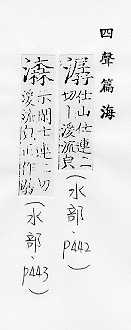 四聲篇海
潺 仕山仕連二
切〡潺流皃
(水部·P442)
潹 下閑士連二切
潺流皃正作潺
(水部·P443)